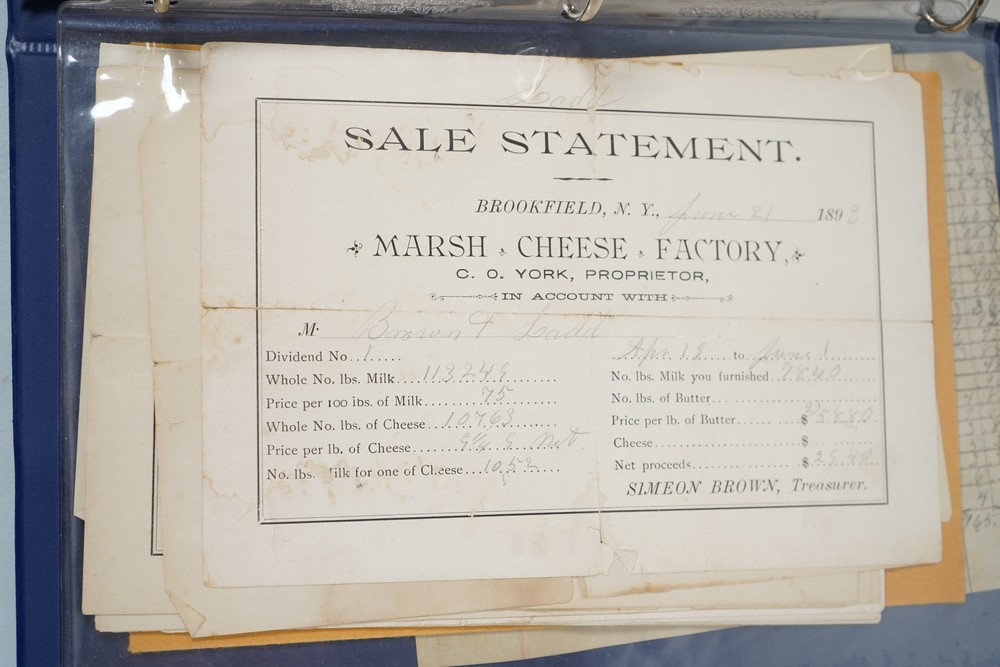 Ladd
SALE STATEMENT.
BROOKFIELD, N. Y., June 21 1893
MARSH CHEESE FACTORY,
C. O. YORK, PROPRIETOR,
IN ACCOUNT WITH
M. Brown & Ladd
Dividend No. 1
Apr. 18 to June 1
Whole No. lbs. Milk 113249
No. lbs. Milk you furnished 7840
Price per 100 lbs. of Milk 75
No. lbs. of Butter
Whole No. lbs. of Cheese 10763
Price per lb. of Butter $ 58.80
Price per lb. of Cheese net
Cheese $
No. lbs. Milk for one of Cheese 10.52
Net proceeds $ 29.40
SIMEON BROWN, Treasurer.